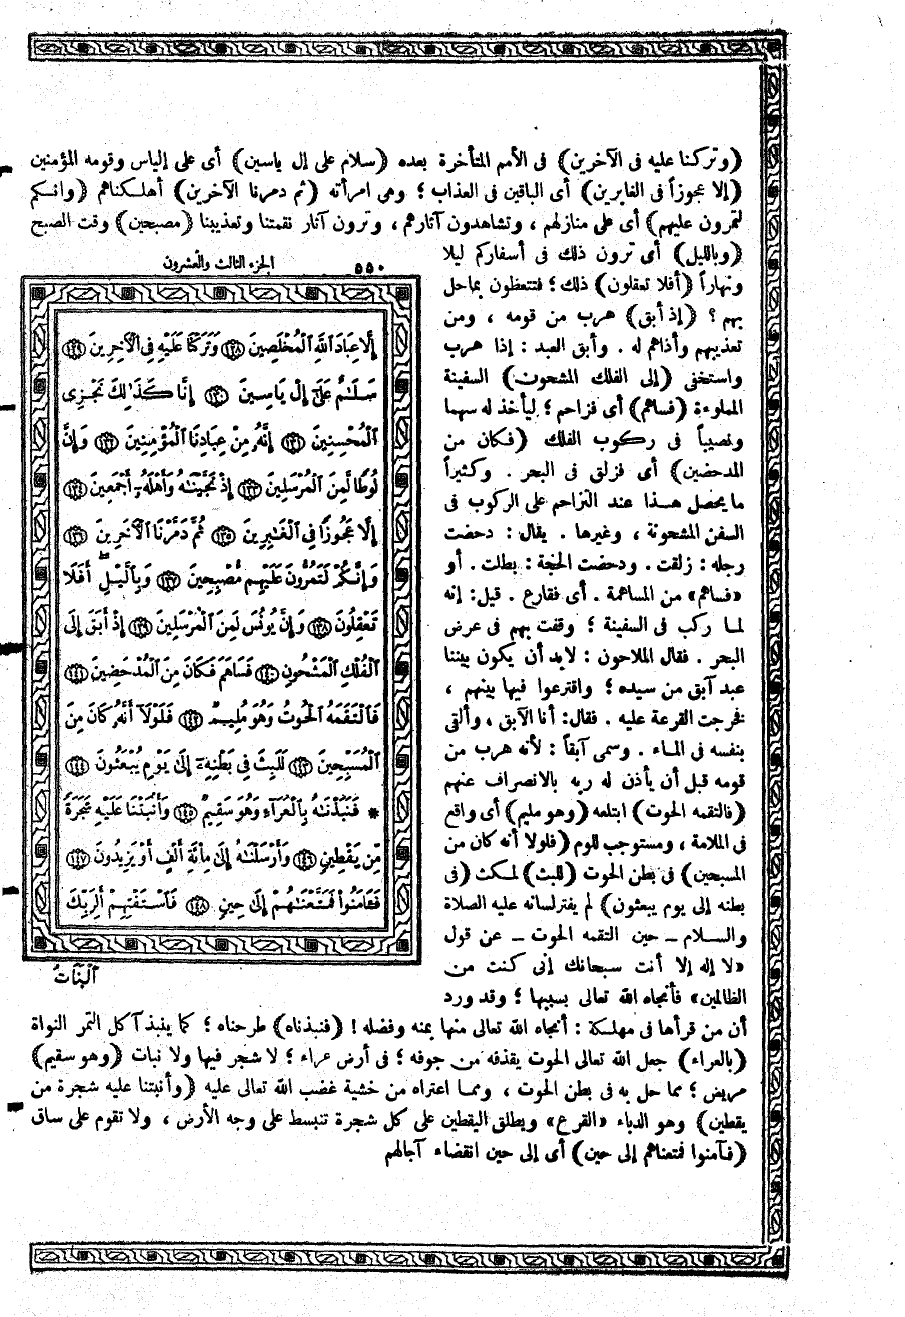 (وتركنا عليه فى الآخرين) فى الأمم المتأخرة بعده (سلام على إل ياسين) أى على إلياس وقومه المؤمنين
(إلا عجوزاً فى الغابرين) أى الباقين فى العذاب ؛ وهى امرأته (ثم دمرنا الآخرين) أهلكناهم (وإنكم
لتمرون عليهم) أى على منازلهم ، وتشاهدون آثارهم ، وترون آثار نقمتنا وتعذيبنا (مصبحين) وقت الصبح
(وبالليل) أى ترون ذلك فى أسفاركم ليلا
ونهاراً (أفلا تعقلون) ذلك ؛ فتتعظون بما حل
بهم ؟ (إذ أبق) هرب من قومه ، ومن
تعذيبهم وأذاهم له . وأبق العبد : إذا هرب
واستخفى (إلى الفلك المشحون) السفينة
المملوءة (فساهم) أى فزاحم ؛ ليأخذ له سهما
ونصيباً فى ركوب الفلك (فكان من
المدحضين) أى فزلق فى البحر . وكثيراً
ما يحصل هذا عند التزاحم على الركوب فى
السفن المشحونة ، وغيرها . يقال : دحضت
رجله : زلقت . ودحضت الحجة : بطلت . أو
«فساهم» من المساهمة . أى فقارع . قيل : إنه
لما ركب فى السفينة ؛ وقفت بهم فى عرض
البحر . فقال الملاحون : لابد أن يكون بيننا
عبد آبق من سيده ؛ واقترعوا فيها بينهم ،
فخرجت القرعة عليه . فقال : أنا الآبق ، وألقى
بنفسه فى الماء . وسمى آبقاً : لأنه هرب من
قومه قبل أن يأذن له ربه بالانصراف عنهم
(فالتقمه الحوت) ابتلعه (وهو مليم) أى واقع
فى الملامة ، ومستوجب للوم (فلولا أنه كان من
المسبحين) فى بطن الحوت (للبث) لمكث (فى
بطنه إلى يوم يبعثون) لم يفتر لسانه عليه الصلاة
والسلام ـ حين التقمه الحوت ـ عن قول
«لا إله إلا أنت سبحانك إنى كنت من
الظالمين» فأنجاه الله تعالى بسببها ؛ وقد ورد
أن من قرأها فى مهلكة : أنجاه الله تعالى منها بمنه وفضله ! (فنبذناه) طرحناه ؛ كما ينبذ آكل التمر النواة
(بالعراء) جعل الله تعالى الحوت يقذفه من جوفه ؛ فى أرض عراء ؛ لا شجر فيها ولا نبات (وهو سقيم)
مريض ؛ مما حل به فى بطن الحوت ، ومما اعتراه من خشية غضب الله تعالى عليه (وأنبتنا عليه شجرة من
يقطين) وهو الدباء «القرع» ويطلق اليقطين على كل شجرة تنبسط على وجه الأرض ، ولا تقوم على ساق
(فآمنوا فمتعناهم إلى حين) أى إلى حين انقضاء آجالهم
٥٥٠ الجزء الثالث والعشرون
إِلَّا عِبَادَ اللَّهِ الْمُخْلَصِينَ ﴿١٢٨﴾ وَتَرَكْنَا عَلَيْهِ فِي الْآخِرِينَ ﴿١٢٩﴾
سَلَٰمٌ عَلَىٰٓ إِلْ يَاسِينَ ﴿١٣٠﴾ إِنَّا كَذَٰلِكَ نَجْزِى
الْمُحْسِنِينَ ﴿١٣١﴾ إِنَّهُ مِنْ عِبَادِنَا الْمُؤْمِنِينَ ﴿١٣٢﴾ وَإِنَّ
لُوطًا لَّمِنَ الْمُرْسَلِينَ ﴿١٣٣﴾ إِذْ نَجَّيْنَٰهُ وَأَهْلَهُۥٓ أَجْمَعِينَ ﴿١٣٤﴾
إِلَّا عَجُوزًا فِي الْغَٰبِرِينَ ﴿١٣٥﴾ ثُمَّ دَمَّرْنَا الْآخَرِينَ ﴿١٣٦﴾
وَإِنَّكُمْ لَتَمُرُّونَ عَلَيْهِم مُّصْبِحِينَ ﴿١٣٧﴾ وَبِالَّيْلِ أَفَلَا
تَعْقِلُونَ ﴿١٣٨﴾ وَإِنَّ يُونُسَ لَمِنَ الْمُرْسَلِينَ ﴿١٣٩﴾ إِذْ أَبَقَ إِلَى
الْفُلْكِ الْمَشْحُونِ ﴿١٤٠﴾ فَسَاهَمَ فَكَانَ مِنَ الْمُدْحَضِينَ ﴿١٤١﴾
فَالْتَقَمَهُ الْحُوتُ وَهُوَ مُلِيمٌ ﴿١٤٢﴾ فَلَوْلَآ أَنَّهُ كَانَ مِنَ
الْمُسَبِّحِينَ ﴿١٤٣﴾ لَلَبِثَ فِي بَطْنِهِۦٓ إِلَىٰ يَوْمِ يُبْعَثُونَ ﴿١٤٤﴾
* فَنَبَذْنَٰهُ بِالْعَرَآءِ وَهُوَ سَقِيمٌ ﴿١٤٥﴾ وَأَنبَتْنَا عَلَيْهِ شَجَرَةً
مِّن يَقْطِينٍ ﴿١٤٦﴾ وَأَرْسَلْنَٰهُ إِلَىٰ مِاْئَةِ أَلْفٍ أَوْ يَزِيدُونَ ﴿١٤٧﴾
فَـَٔامَنُوا فَمَتَّعْنَٰهُمْ إِلَىٰ حِينٍ ﴿١٤٨﴾ فَاسْتَفْتِهِمْ أَلِرَبِّكَ
الْبَنَاتُ